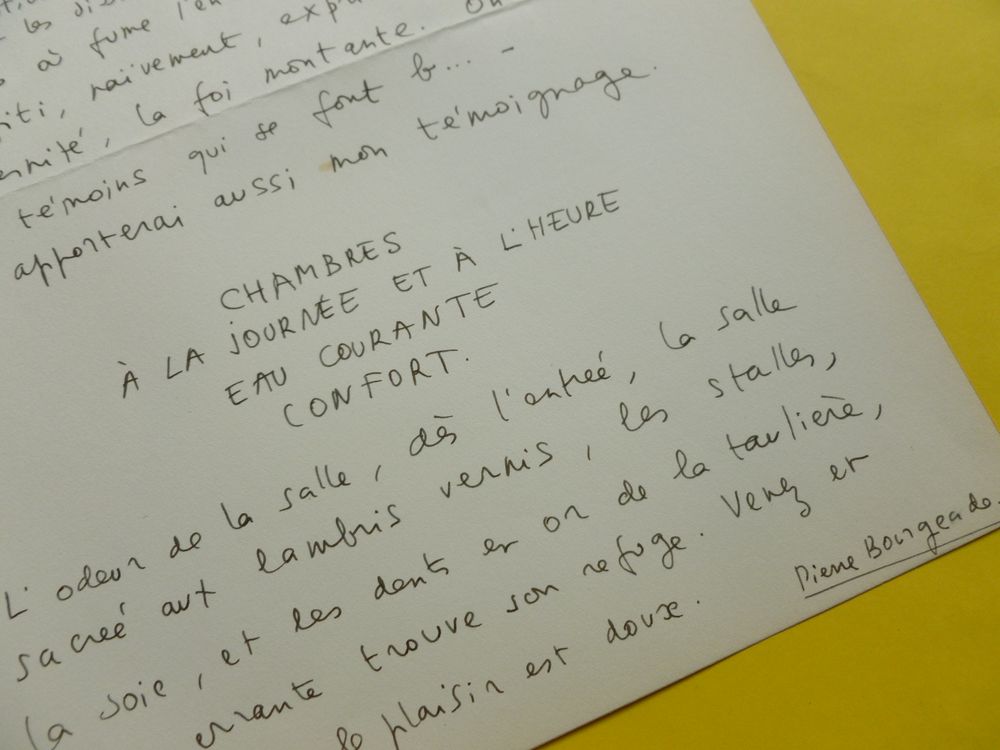 les
à fume l'en
naïvement, exp
la foi montante. On
témoins qui se font b... -
apporterai aussi mon témoignage.
CHAMBRES
À LA JOURNÉE ET À L'HEURE
EAU COURANTE
CONFORT.
L'odeur de la salle, dès l'entrée, la salle
sacrée aux lambris vernis, les stalles,
la soie, et les dents en or de la taulière,
errante trouve son refuge. Venez et
le plaisir est doux.
Pierre Bourgeade.